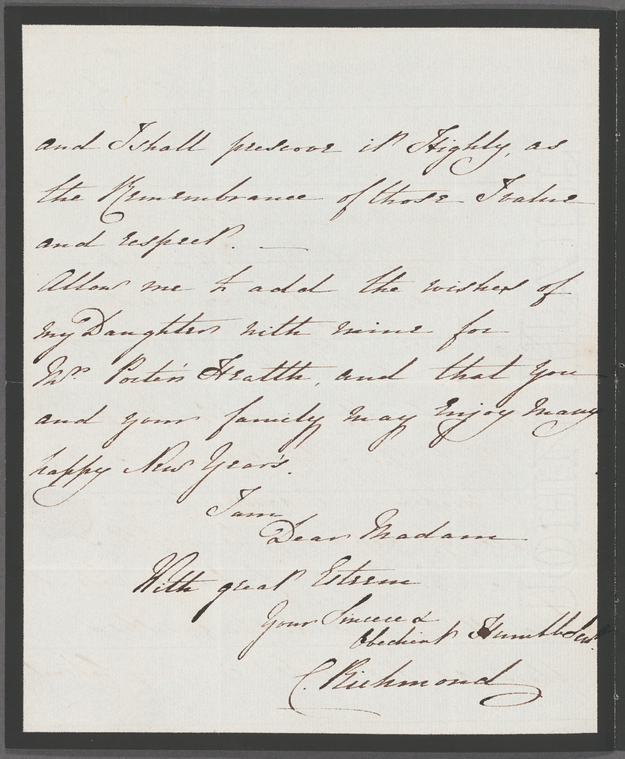 and I shall preserve it Highly, as
the Remembrance of those I value
and respect. —
Allow me to add the wishes of
my Daughters with mine for
Mr. Porter's Health, and that you
and your family may Enjoy many
happy New Year's.
I am
Dear Madam
With great Esteem
Your Sincere &
Obedient Humble Servt.
C. Richmond